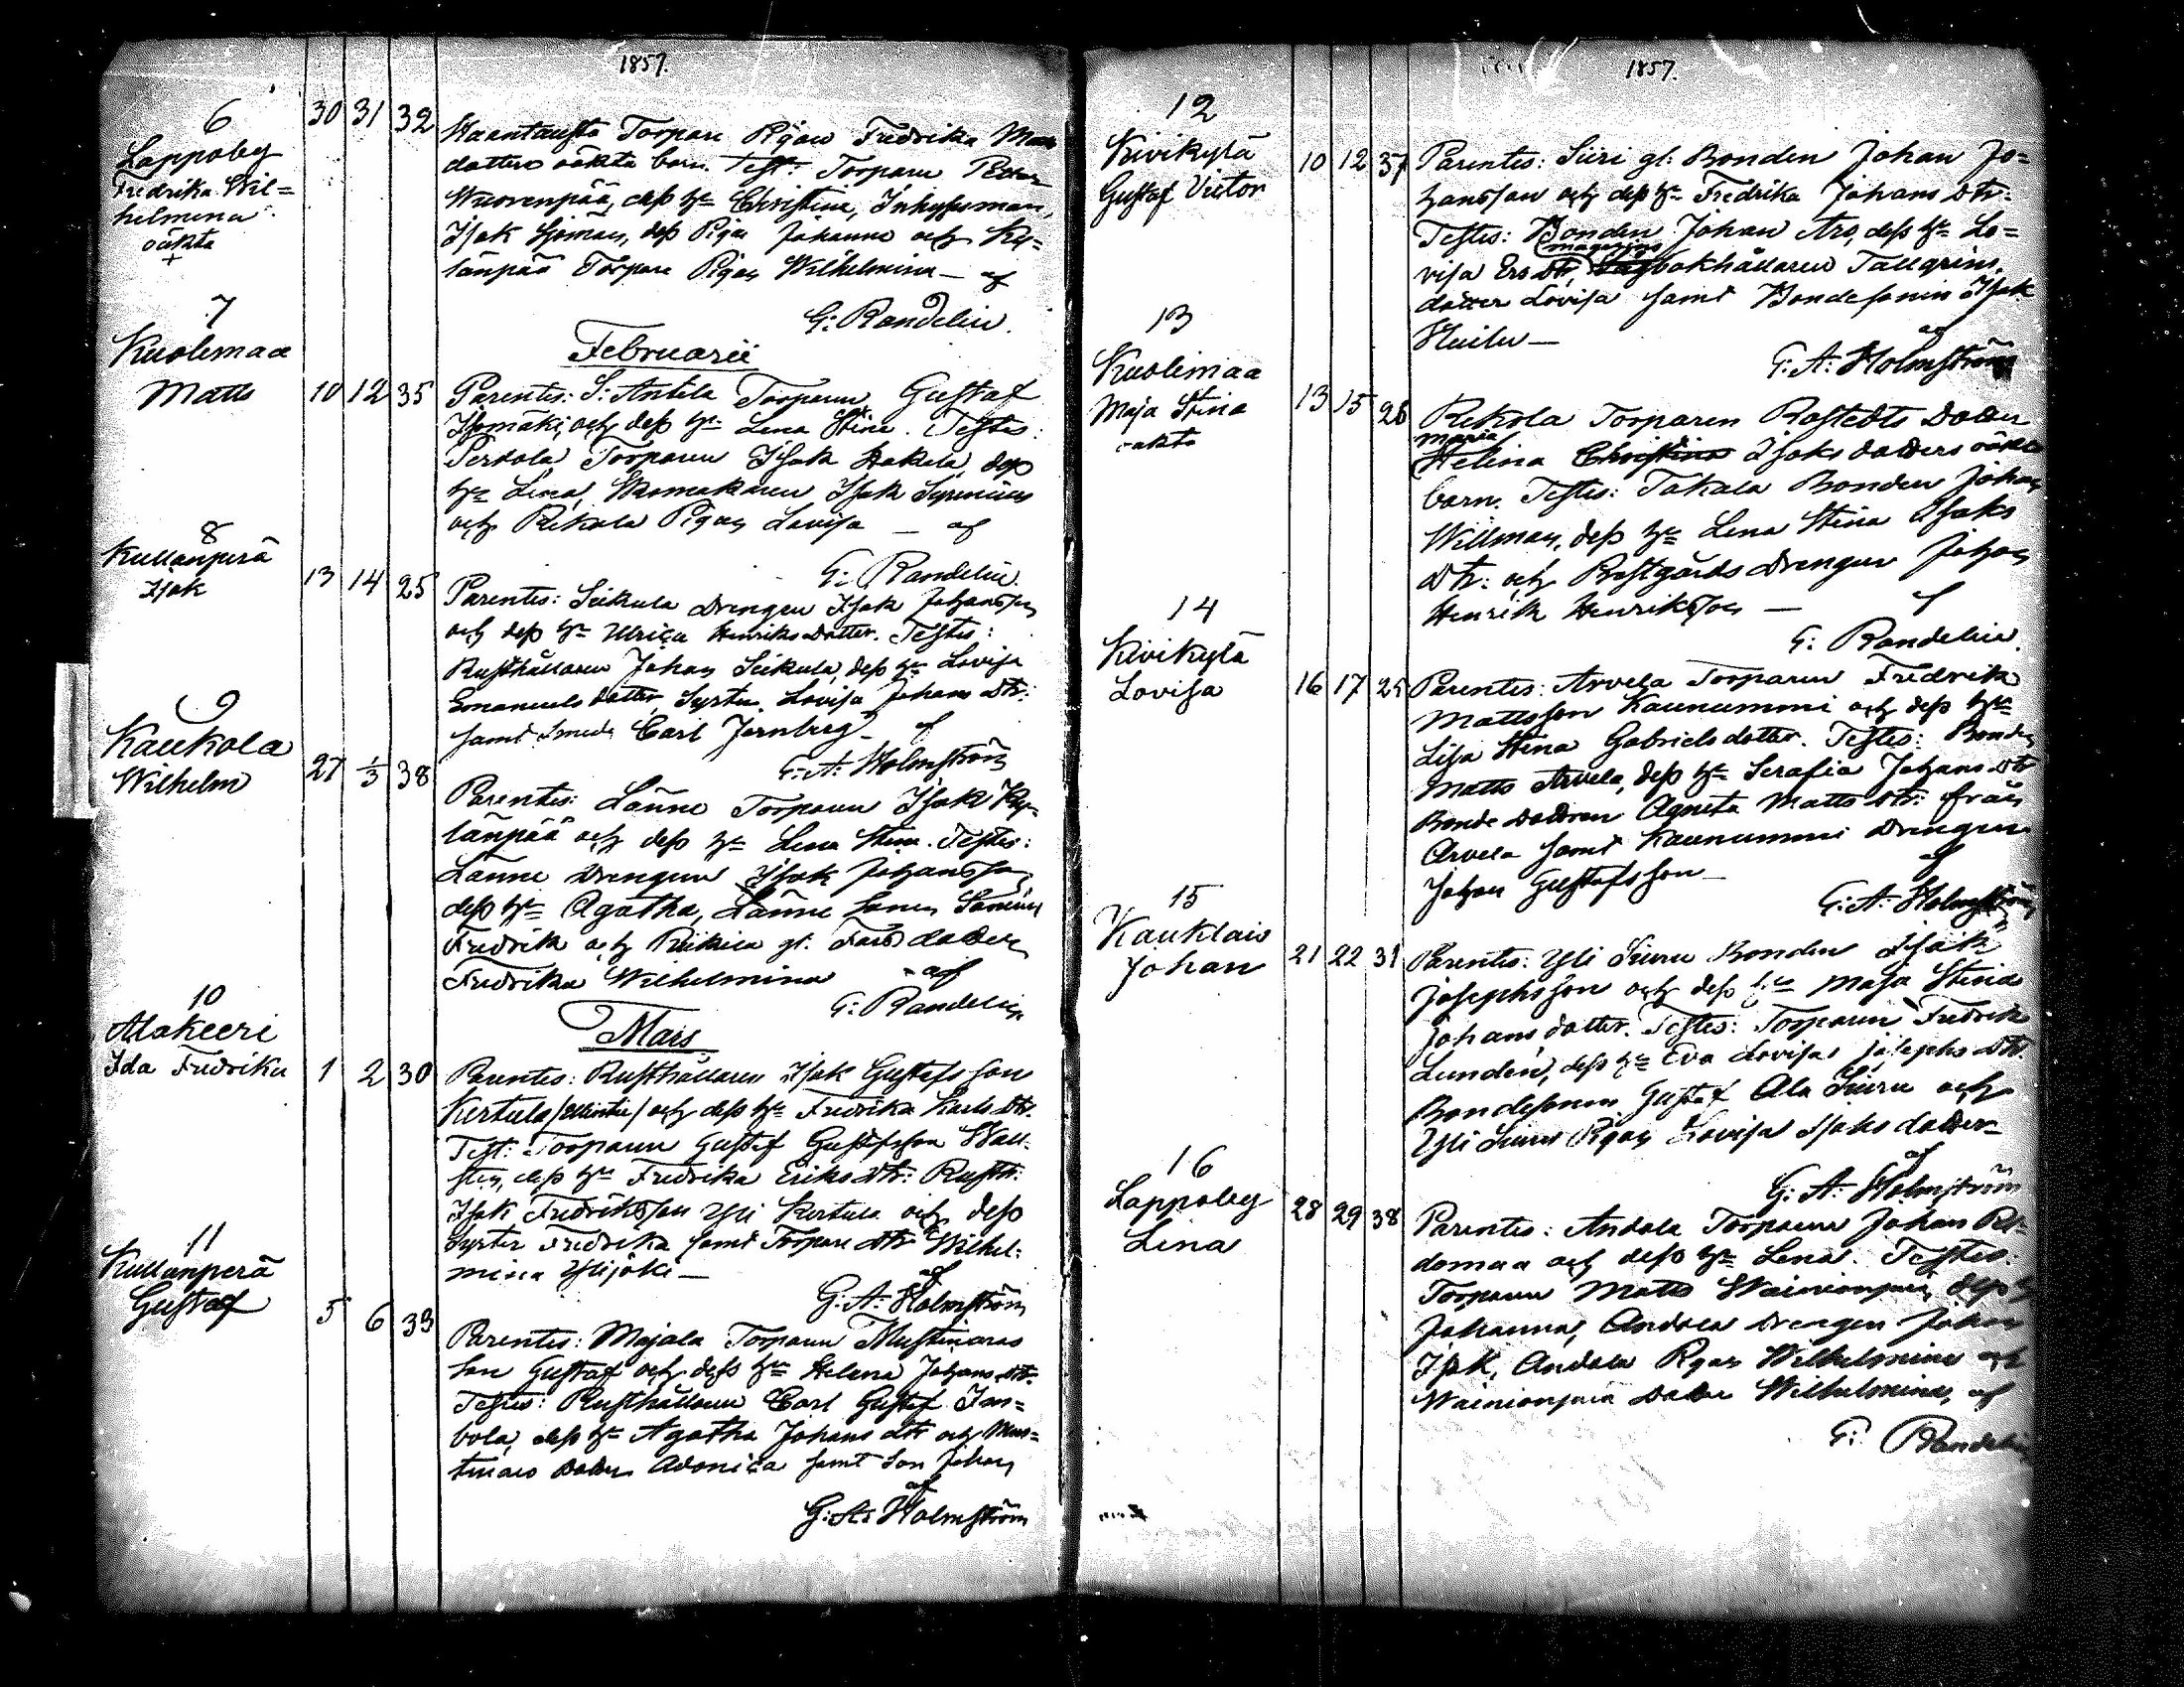 1857.
6
Lappoby
Fredrika Wil=
helmina
oäkta
+
30 31 32
Torpare Pigan Fredrika
dotters oäkta barn. Test: Torparen Petter
Wuorenpää, dess h:u Christina, Inhysesman,
Isak Sjöman, dess Pigan Johanna och Ky=
länpää Torpare Pigan Wilhelmina — af
G: Randelin.
Februarii
7
Kuolimaa
Matts
10 12 35
Parentes: S: Anttila Torparen Gustaf
Isomäki, och dess h:u Lena Stina. Testes:
Pertola Torparen Isak Hakala, dess
h:u Lena, Skomakaren Isak Syrenius
och Rekola Pigan Lovisa — af
G: Randelin
8
Kullanperä
Isak
13 14 25
Parentes: Seikula Drengen Isak Johansson
och dess h:u Ulrica Henriks dotter. Testes:
Rusthållaren Johan Seikula, dess h:u Lovisa
Emanuels dotter, Syster Lovisa Johans dtr:
samt Smeds Carl Jernberg — af
G: A: Holmström
9
Kaukola
Wilhelm
27 1/3 38
Parentes: Länne Torparen Isak Ky=
länpää och dess h:u Lena Stina. Testes:
Länne Drengen Isak Johansson,
dess h:u Agatha, Länne Sonen
Fredrik och gl. dotter
Fredrika Wilhelmina — af
G: Randelin
Mars
10
Alakeeri
Ida Fredrika
1 2 30
Parentes: Rusthållaren Isak Gustafsson
Kertula och dess h:u Fredrika Karls dtr.
Test: Torparen Gustaf Gustafsson Wall=
sten, dess h:u Fredrika Eriks dtr: Rusth:
Isak Fredriksson Yli Kertula och dess
syster Fredrika samt Torpare dtr Wilhel=
mina Ylijoki —
af
G: A: Holmström
11
Kullanperä
Gustaf
5 6 33
Parentes: Majala Torparen Mustinaras
son Gustaf och dess h:u Helena Johans dtr.
Testes: Rusthållaren Carl Gustaf Jan=
bola, dess h:u Agatha Johans dtr och Mus=
tinaras dotter Adonica samt son Johan
af
G: A: Holmström
1857.
12
Kivikylä
Gustaf Victor
10 12 37
Parentes: Siiri gl: Bonden Johan Jo=
hansson och dess h:u Fredrika Johans dtr:
Testes: Bonden Johan Aro, dess h:u Lo=
magazins
visa Ers dtr, bokhållaren Tallgrens
dotter Lovisa samt Bondesonen Isak
Huilu —
af
G: A: Holmström
13
Kuolimaa
Maja Stina
oäkta
13 15 26
Rekola Torparen Rostedts Dotter
Maria
Helena Christina Isaks dotters oäkta
barn. Testes: Takala Bonden Johan
Willman, dess h:u Lena Stina Isaks
dtr: och Prestgårds Drengen Johan
Henrik Henriksson — af
G: Randelin.
14
Kivikylä
Lovisa
16 17 25
Parentes: Arvela Torparen Fredrik
Mattsson Kaunummi och dess h:u
Lisa Stina Gabriels dotter. Testes: Bonden
Matts Arvela, dess h:u Serafia Johans dtr
Bonde Dottren Agneta Matts dtr: från
Arvela samt Kaunummi Drengen
Johan Gustafsson —
af
G: A: Holmström
15
Kauklais
Johan
21 22 31
Parentes: Yli Siuru Bonden Isak
Josephsson och dess h:u Maja Stina
Johans dotter. Testes: Torparen Fredrik
Lundén, dess h:u Eva Lovisa Josephs dtr.
Bondesonen Gustaf Ala Siuru och
Yli Siuru Pigan Lovisa Isaks dotter —
af
G: A: Holmström
16
Lappoby
Lina
28 29 38
Parentes: Andola Torparen Johan
domaa och dess h:u Lena. Testes:
Torparen Matts Wainionpää, dess h:u
Johanna, Andola Drengen Johan
Isak, Andola Pigan Wilhelmina och
Wainionpää Dotter Wilhelmina, af
G: Randelin